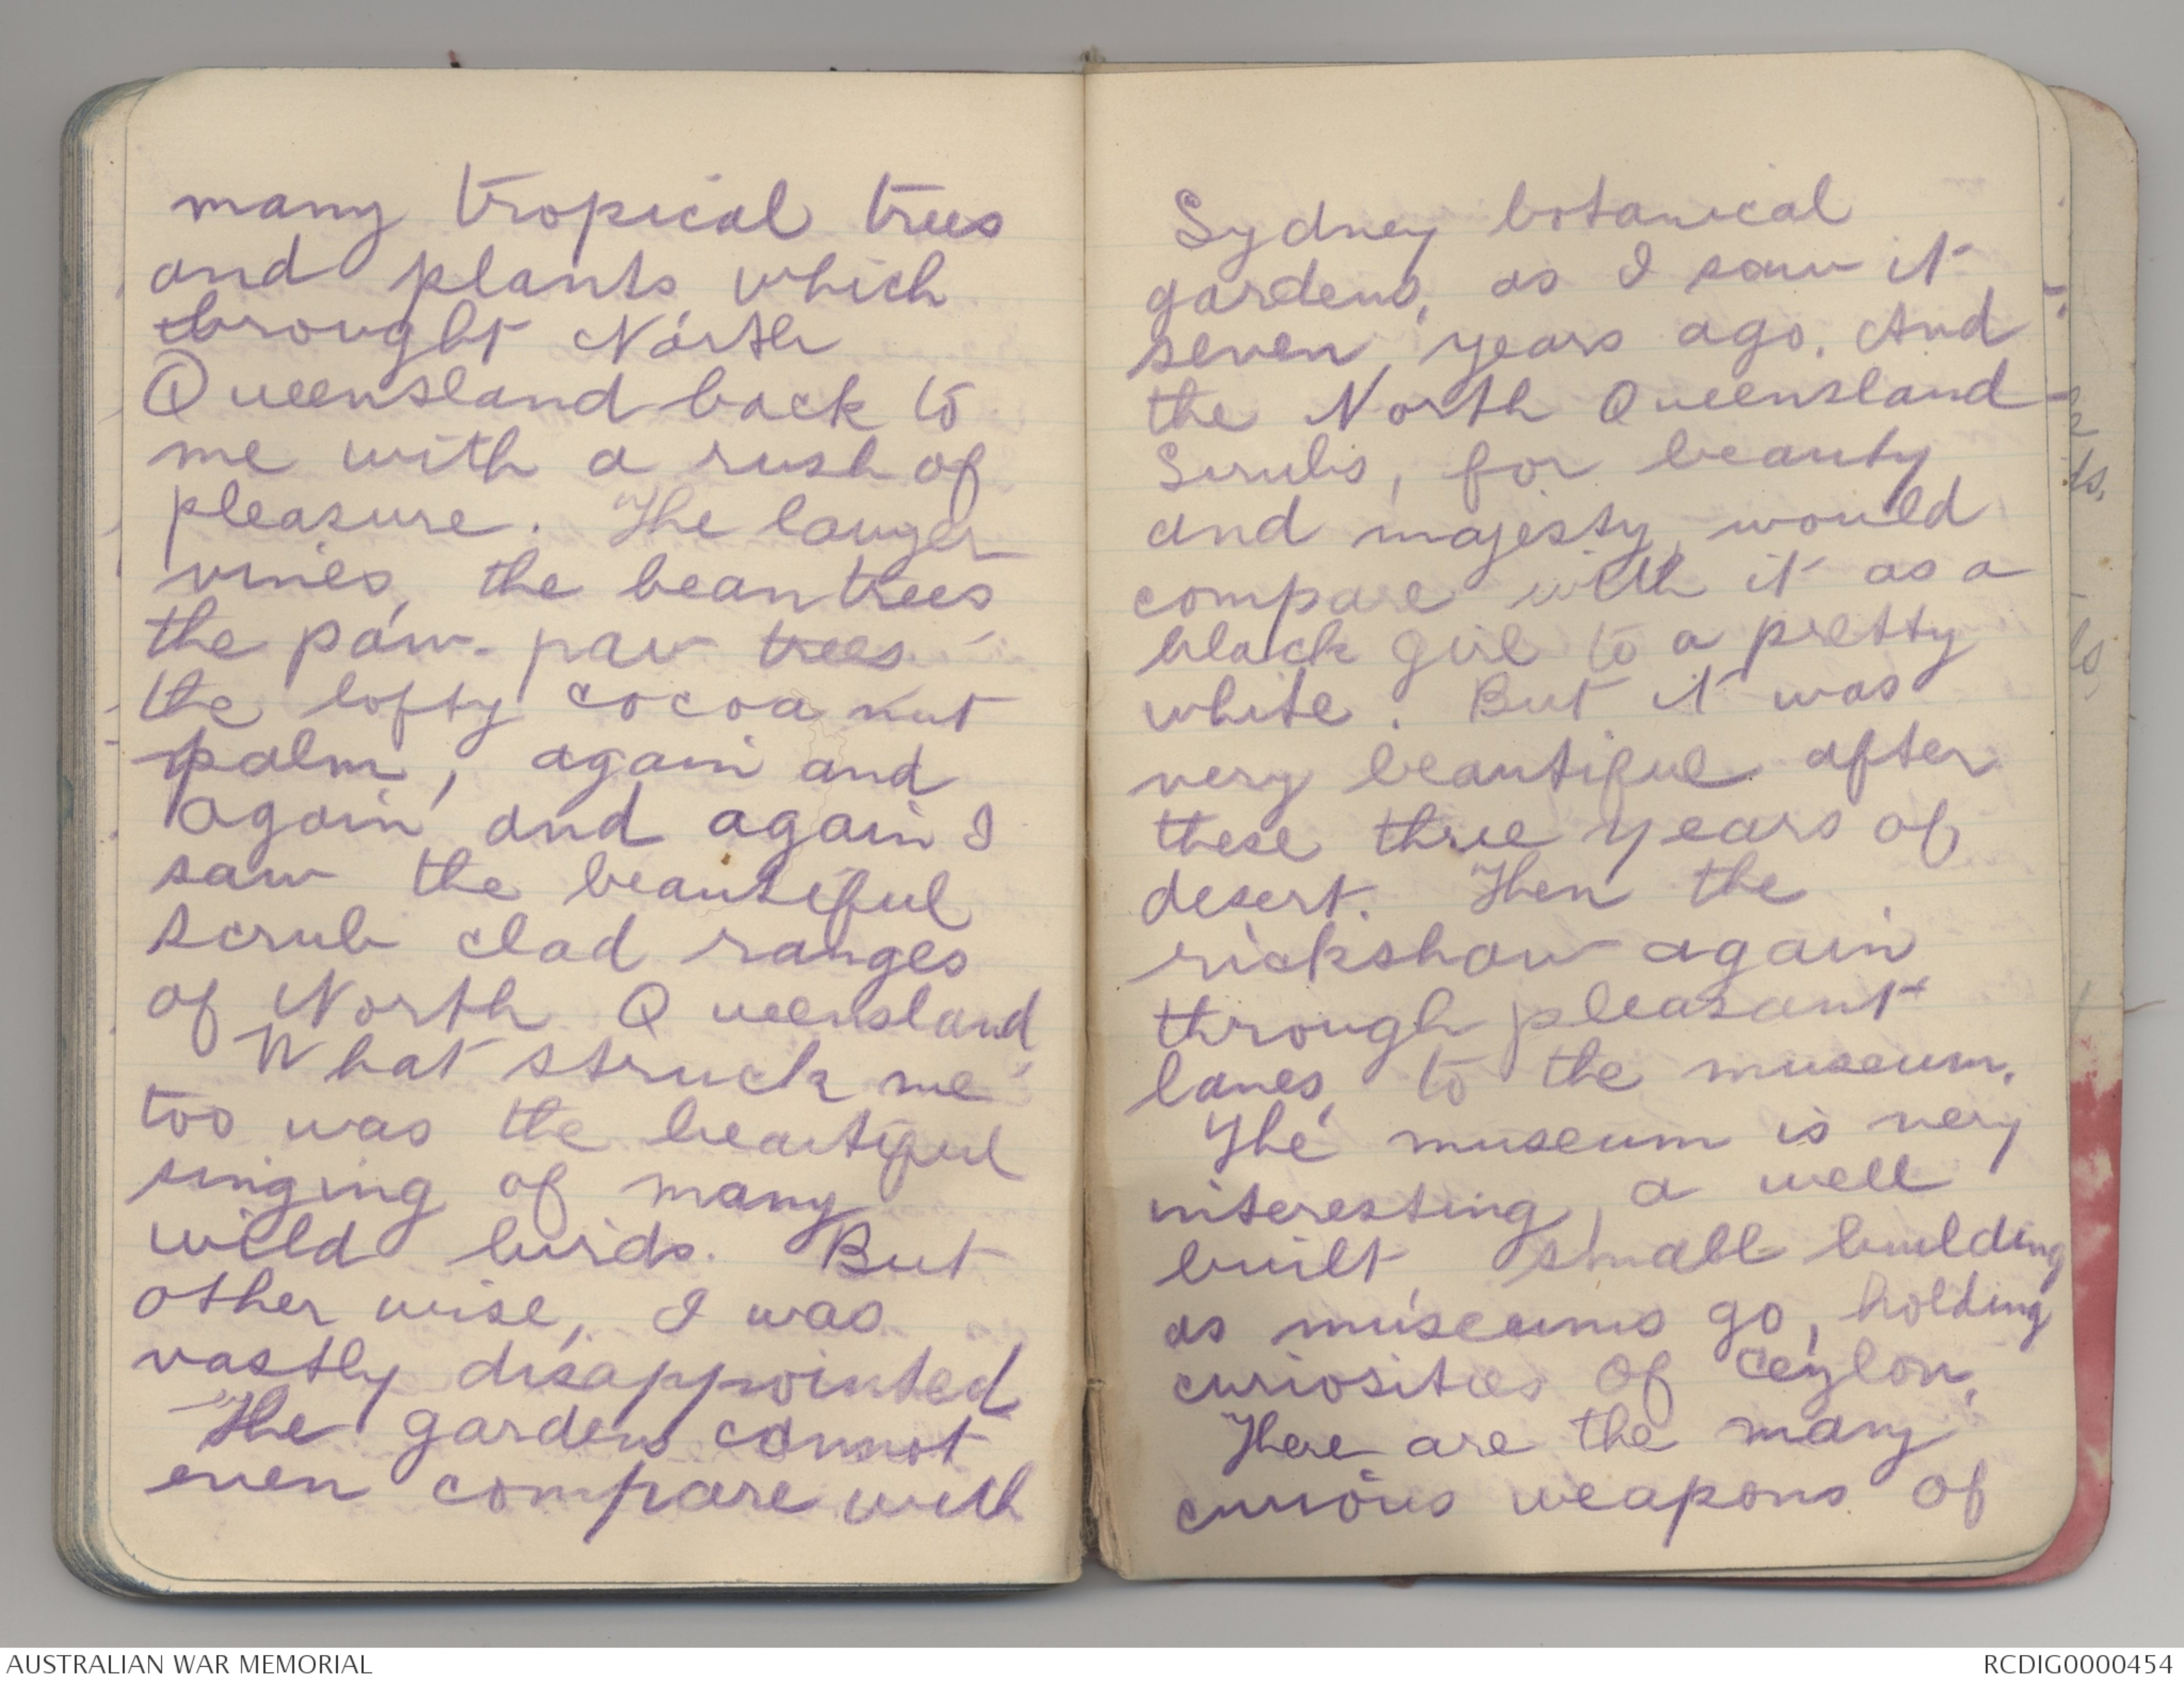 many tropical trees
and plants, which
brought North
Queensland back to
me with a rush of
pleasure. The lawyer
vines, the bean trees,
the paw-paw trees
the lofty cocoa nut
palm, again and
again and again I
saw the beautiful
scrub clad ranges
of North Queensland.
What struck me
too was the beautiful
singing of many
wild birds. But
other wise, I was
vastly disappointed.
The gardens cannot
even compare with
Sydney botanical
gardens, as I saw it
seven years ago. And
the North Queensland
Scrubs, for beauty
and majesty, would
compare with it as a
black girl to a pretty
white. But it was
very beautiful after
these three years of
desert. Then the
rickshaw again
through pleasant
lanes, to the museum.
The museum is very
interesting, a well
built, small building
as museums go, holding
curiosities of Ceylon.
There are the many
curious weapons of
AUSTRALIAN WAR MEMORIAL
RCDIG0000454